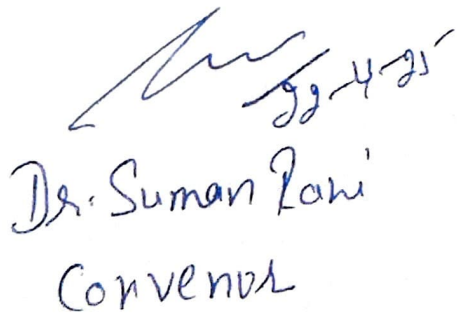 22-4-25
Dr. Suman Rani
Convenor